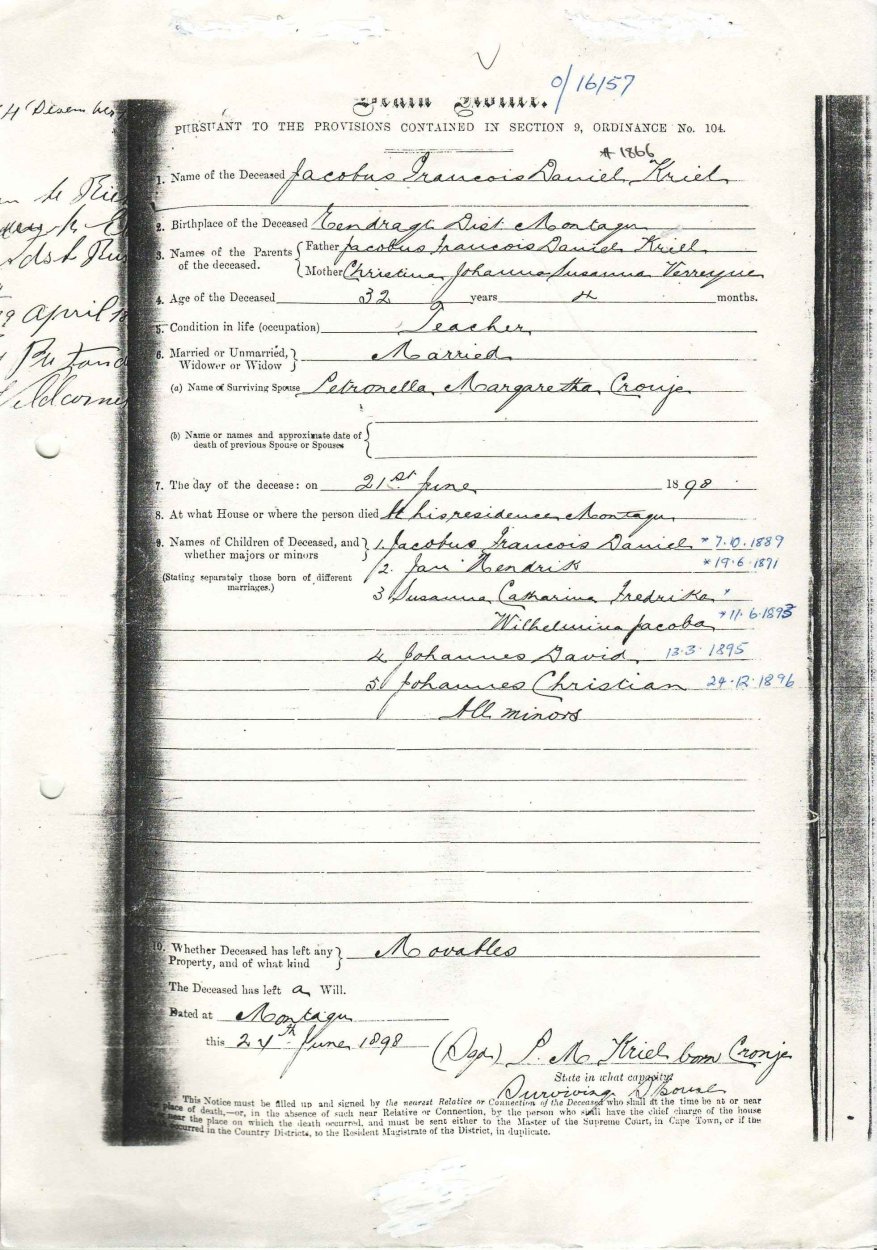 0/16/57
Death Notice.
PURSUANT TO THE PROVISIONS CONTAINED IN SECTION 9, ORDINANCE No. 104.
* 1866
1. Name of the Deceased Jacobus Francois Daniel Kriel
2. Birthplace of the Deceased Eendragt Dist. Montagu
3. Names of the Parents of the deceased. Father Jacobus Francois Daniel Kriel
Mother Christina Johanna Susanna Verreyne
4. Age of the Deceased 32 years 4 months.
5. Condition in life (occupation) Teacher
6. Married or Unmarried, Widower or Widow Married
(a) Name of Surviving Spouse Petronella Margaretha Cronje
(b) Name or names and approximate date of
death of previous Spouse or Spouses
7. The day of the decease: on 21st June 1898
8. At what House or where the person died At his residence Montagu
9. Names of Children of Deceased, and whether majors or minors
(Stating separately those born of different marriages.)
1. Jacobus Francois Daniel * 7.10.1889
2. Jan Hendrik * 19.6.1871
3 Susanna Catharina Fredrika *
Wilhelmina Jacoba * 11.6.1893
4 Johannes David 13.3.1895
5 Johannes Christian 24.12.1896
All minors
10. Whether Deceased has left any Property, and of what kind Movables
The Deceased has left a Will.
Dated at Montagu
this 24th June 1898
(Sgd) P. M. Kriel born Cronje
State in what capacity
Surviving Spouse
This Notice must be filled up and signed by the nearest Relative or Connection of the Deceased who shall at the time be at or near
place of death,—or, in the absence of such near Relative or Connection, by the person who shall have the chief charge of the house
near the place on which the death occurred, and must be sent either to the Master of the Supreme Court, in Cape Town, or if the
occurred in the Country Districts, to the Resident Magistrate of the District, in duplicate.
April